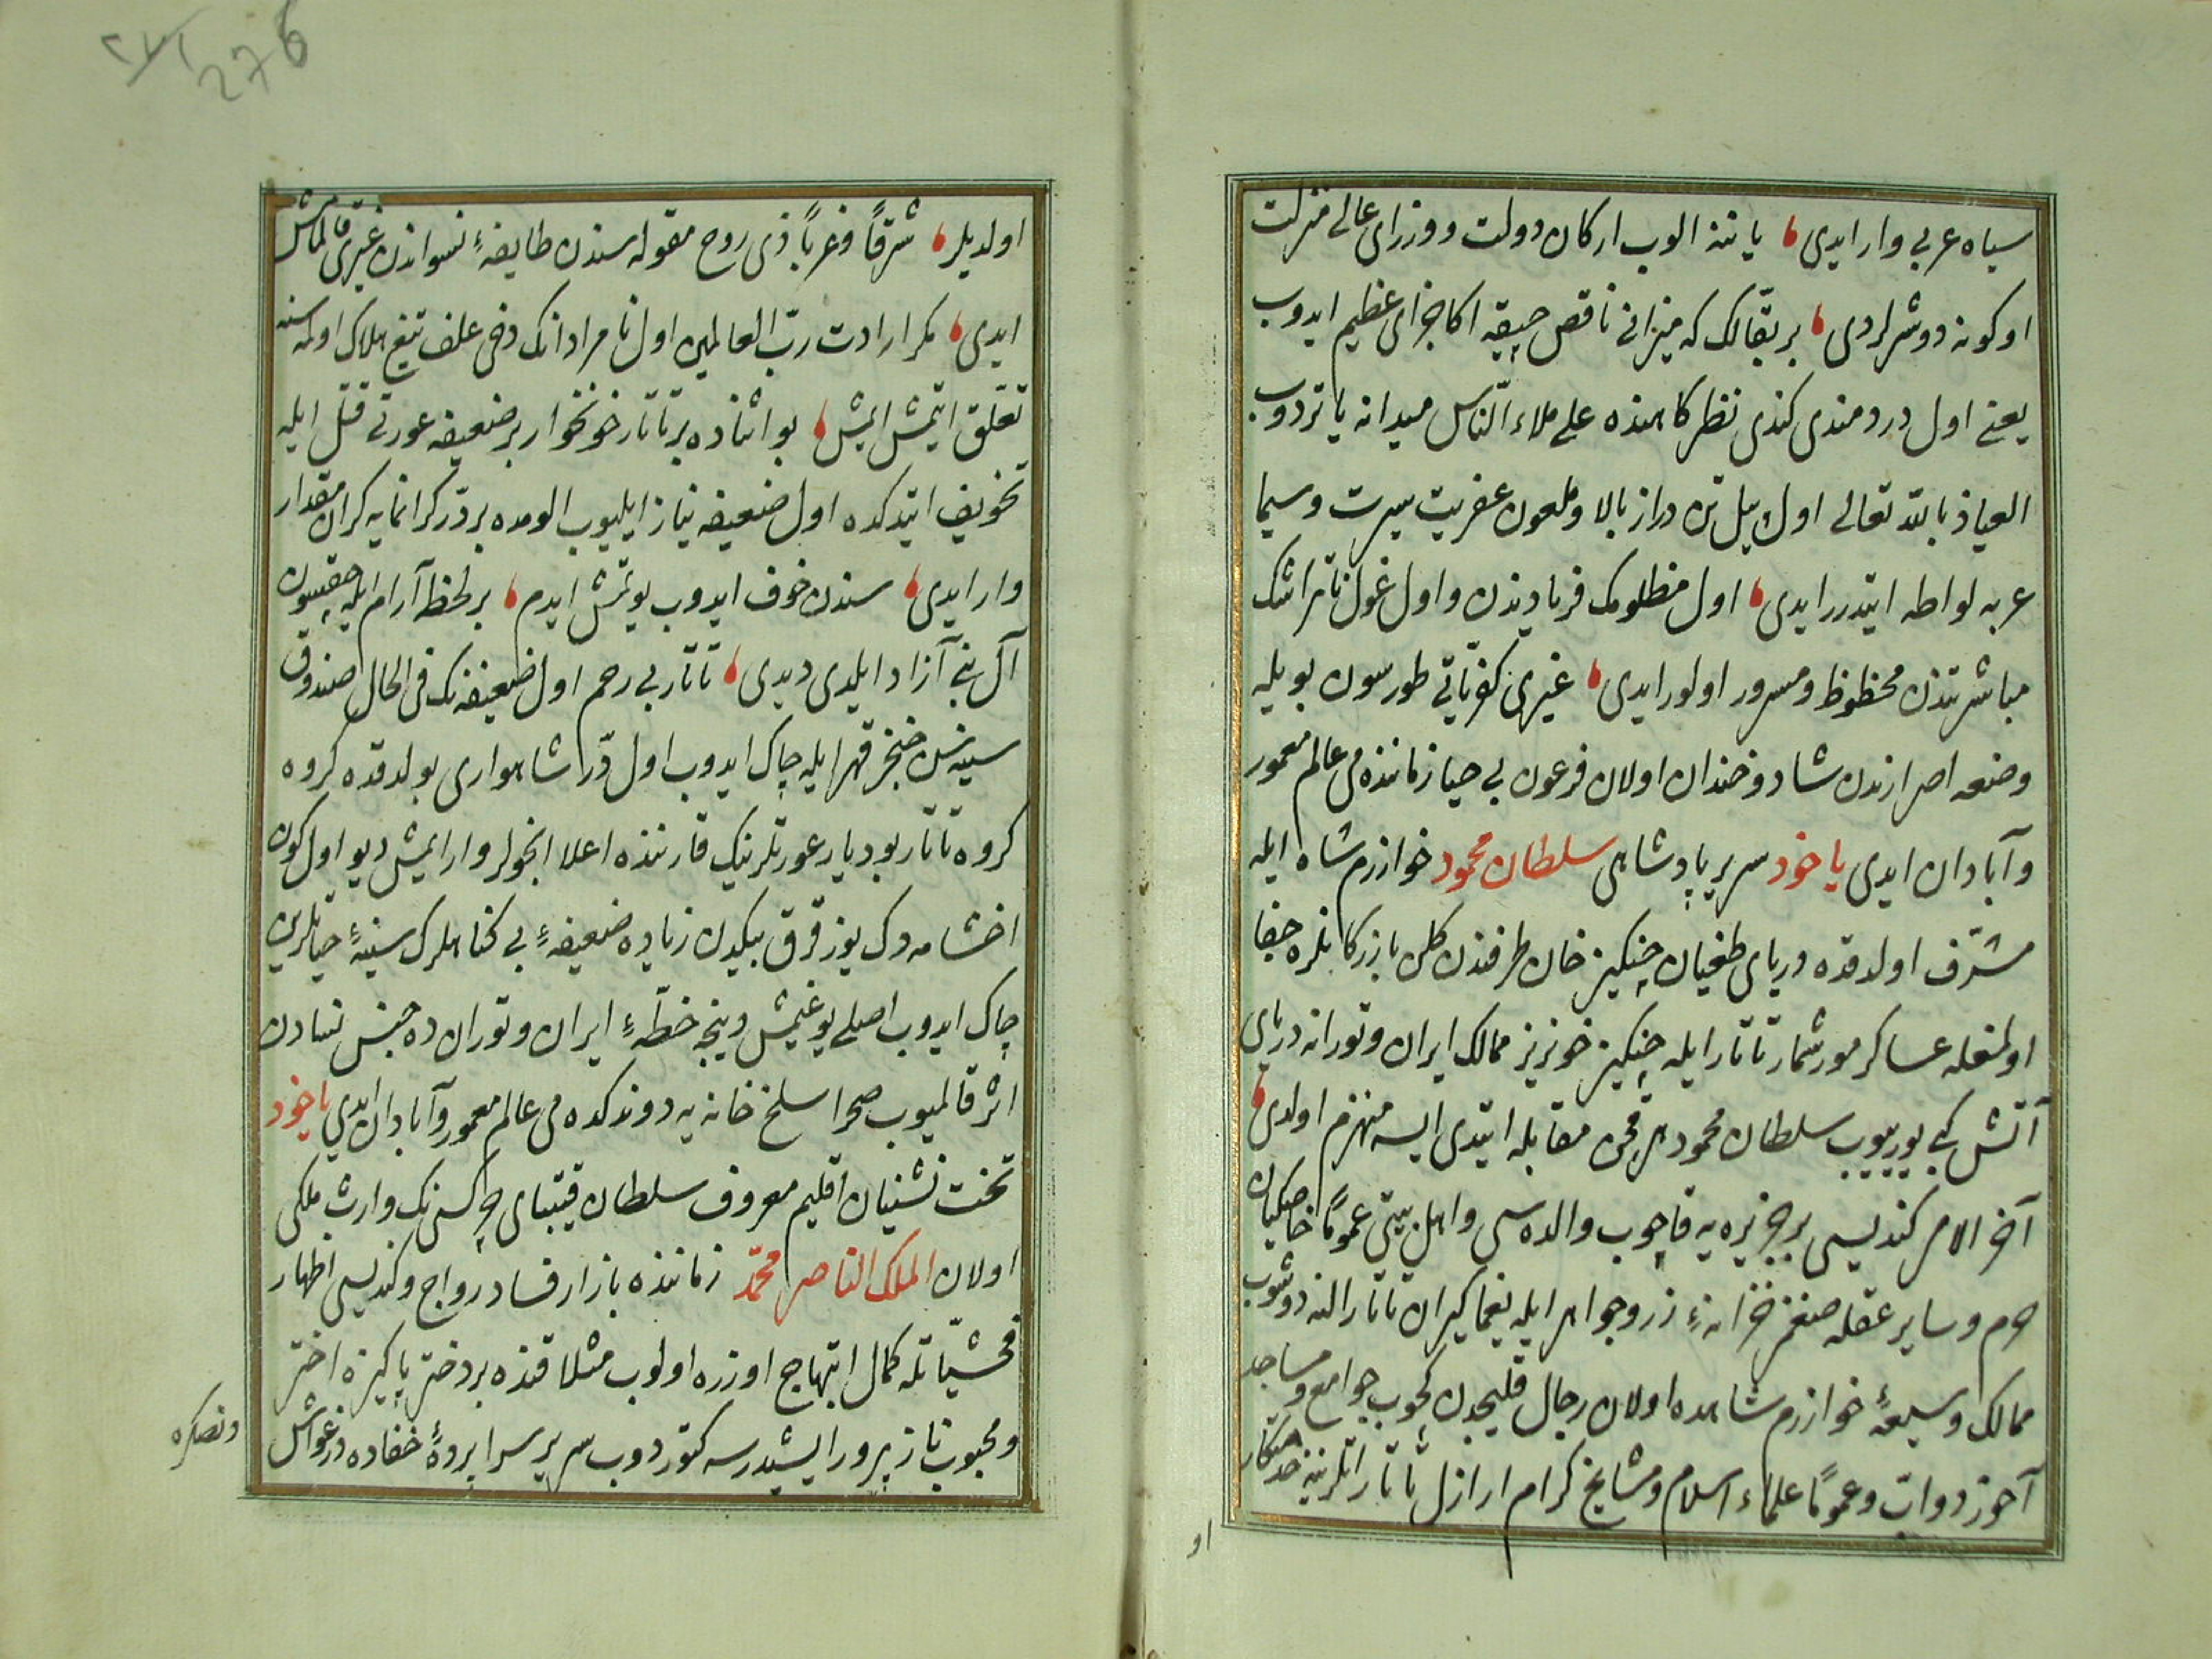 سیاه عربی وار ایدی یاننه الوب ارکان دولت ووزرای عالی منزلت
اوکونه دوشرلردی بر بقالک که میزانی ناقص چیقه اکا جزای عظیم ایدوب
یعنی اول دردمندی کندی نظرکاهنده علی ملاء النّاس میدانه یاتردوب
العیاذ بالله تعالی اول پیل تن دراز بالا وملعون عفریت سیرت وسیما
عربه لواطه ایتدرر ایدی اول مظلومک فریادیندن واول غول ناتراشک
مباشرتندن محظوظ ومسرور اولور ایدی غیری کفریّاتی طورسون بویله
وضعه اصرارندن شاد وخندان اولان فرعون بی حیا زماننده می عالم معمور
وآبادان ایدی یاخود سریر پادشاهی سلطان محمود خوارزم شاه ایله
مشرّف اولدقده دریای طغیان چنکیز خان طرفندن کلن بازرکانلره جفا
اولنمغله عساکر مور شمار تاتار ایله چنکیز خونریز ممالک ایران وتورانه دریای
آتش کبی یوریوب سلطان محمود هر قچن مقابله ایتدی ایسه منهزم اولدی
آخر الامر کندیسی بر جزیره یه قاچوب والده سی واهل بیتی عموماً خاصکیان
حرم وسایر عقله صغمز خزانهٔ زر وجواهر ایله یغماکیران تاتار النه دوشوب
ممالک وسیعهٔ خوارزم شاهده اولان رجال قلیجدن کچوب جوامع ومساجد
آخور دواب وعموماً علماء اسلام ومشایخ کرام ارازل تاتار اتلرینه خدمتکار
او
276
اولدیلر شرقاً وغرباً ذی روح مقوله سندن طایفهٔ نسواندن غیری قالمامش
ایدی مکر ارادت ربّ العالمین اول نامرادانک دخی علف تیغ هلاک اولمه سنه
تعلّق ایتمش ایمش بو اثناده بر تاتار خونخوار بر ضعیفه عورتی قتل ایله
تخویف ایتدکده اول ضعیفه نیاز ایلیوب الومده بر درّ کرانمایه کران مقدار
وار ایدی سندن خوف ایدوب یوتمش ایدم بر لحظه آرام ایله چقسون
آل بنی آزاد ایله دیدی تاتار بی رحم اول ضعیفه نک فی الحال صندوق
سینه سن خنجر قهر ایله چاک ایدوب اول درّ شاهواری بولدقده کروه
کروه تاتار بو دیار عورتلرینک قارننده اعلا انجولر وار ایمش دیو اول کون
اخشامه دک یوز قرق بیکدن زیاده ضعیفهٔ بی کناهلرک سینهٔ حیاتلرین
چاک ایدوب اصلی یوغیمش ونیجه خطّهٔ ایران وتوران ده جنس نسادن
اثر قالمیوب صحرا سلخ خانه یه دوندکده می عالم معمور وآبادان ایدی یاخود
تخت نشینان اقلیم معروف سلطان قیتبای چرکسی نک وارث ملکی
اولان الملک الناصر محمّد زماننده بازار فساد رواج وکندیسی اظهار
فحشیّاتله کمال ابتهاج اوزره اولوب مثلا قنده بر دختر پاکیزه اختر
ومحبوب ناز پرور ایشیدرسه کتوردوب سریر سراپردهٔ خفاده
ونصکره